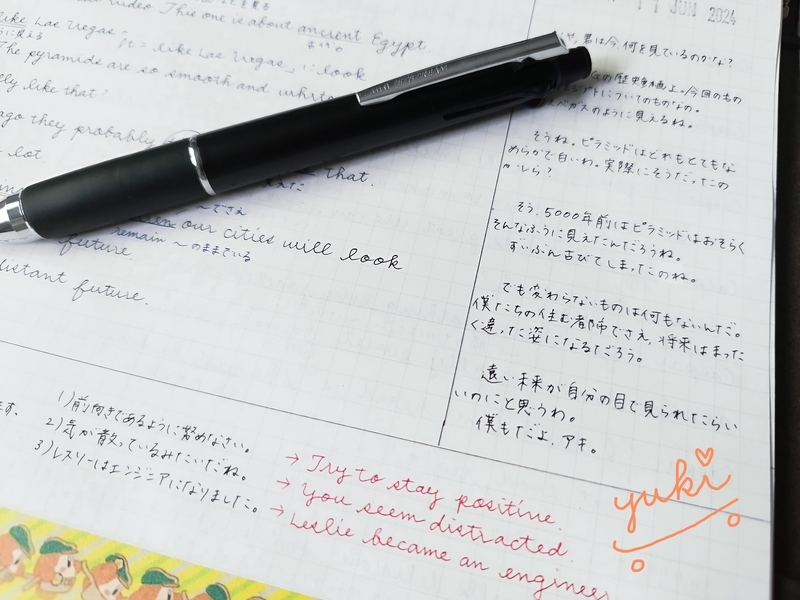 video This one is about ancient Egypt
like Las Vegas
it = like Las Vegas」に look
The pyramids are so smooth and
like that?
ago they probably
lot.
that.
〜でさえ
our cities will look
remain 〜のままでいる
future.
distant future.
11 JUN 2024
君は今、何を見ているのかな?
の歴史動画よ。今回のもの
についてのものなの。
ベガスのように見えるね。
そうね。ピラミッドはどれもとてもな
めらかで白いわ。実際にそうだったの
かしら?
そう、5000年前はピラミッドはおそらく
そんなふうに見えたんだろうね。
ずいぶん古びてしまったのね。
でも変わらないものは何もないんだ。
僕たちの住む都市でさえ、将来はまった
く違った姿になるだろう。
遠い未来が自分の目で見られたらい
いのにと思うわ。
僕もだよ、アキ。
ます。
1)前向きであるように努めなさい。
2)気が散っているみたいだね。
3)レスリーはエンジニアになりました。
→ Try to stay positive.
→ You seem distracted.
→ Leslie became an engineer
yuki